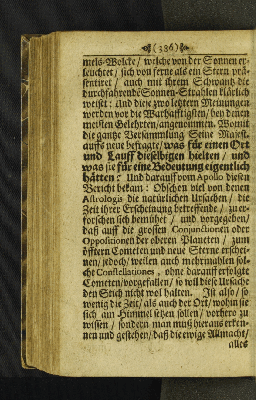 (386)
mels-Wolcke/ welche von der Sonnen er-
leuchtet / sich von ferne als ein Stern præ-
sentiret / auch mit ihrem Schwantz die
durchfahrende Sonnen-Strahlen klärlich
weiset: Und diese zwo letztern Meinungen
werden vor die Warhafftigsten/ bey denen
meisten Gelehrten/angenommen. Womit
die gantze Versammlung Seine Mayest.
auffs neue befragte/ was für einen Ort
und Lauff dieselbigen hielten/ und
was sie für eine Bedeutung eigentlich
hätten: Und darauff vom Apollo diesen
Bericht bekam: Obschon viel von denen
Astrologis die natürlichen Ursachen/ die
Zeit ihrer Erscheinung betreffende / zu er-
forschen sich bemühet / und vorgegeben/
daß auff die grossen Conjunctionen oder
Oppositionen der oberen Planeten / zum
öfftern Cometen und neue Sterne erschei-
nen/ jedoch/ weilen auch mehrmahlen sol-
che Constellationes, ohne darauff erfolgte
Cometen/vorgefallen/ so will diese Ursache
den Stich nicht wol halten. Ist also / so
wenig die Zeit/ als auch der Ort/ wohin sie
sich am Himmel setzen sollen/ vorhero zu
wissen / sondern man muß hieraus erken-
nen und gestehen/ daß die ewige Allmacht/
alles